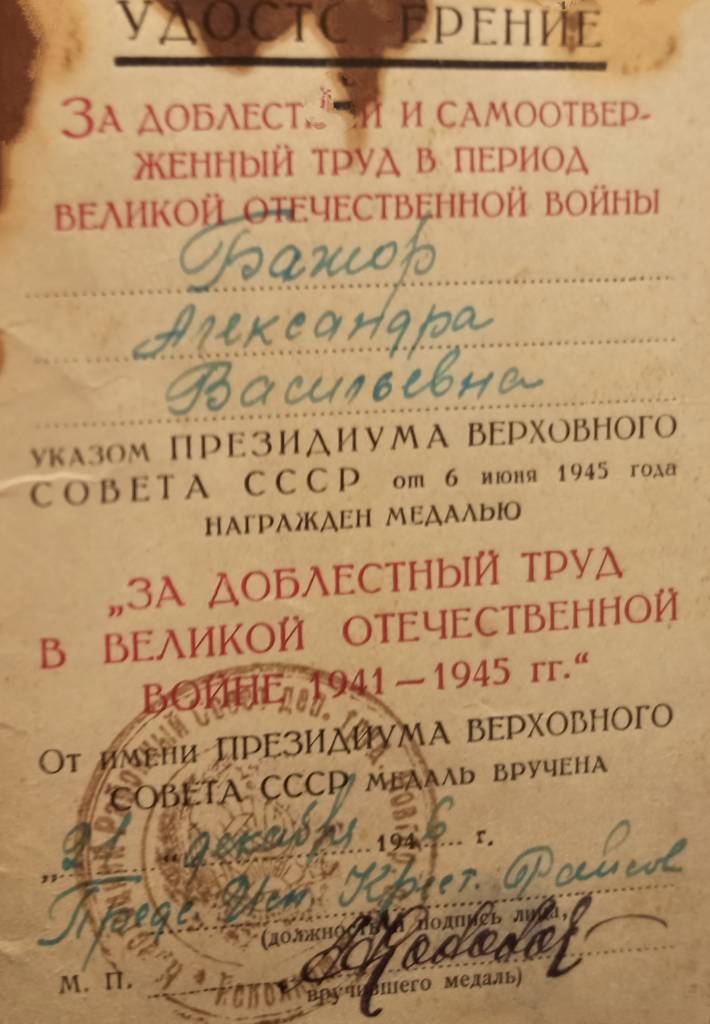 УДОСТОВЕРЕНИЕ
ЗА ДОБЛЕСТНЫЙ И САМООТВЕР-
ЖЕННЫЙ ТРУД В ПЕРИОД
ВЕЛИКОЙ ОТЕЧЕСТВЕННОЙ ВОЙНЫ
Бажор
Александра
Васильевна
УКАЗОМ ПРЕЗИДИУМА ВЕРХОВНОГО
СОВЕТА СССР от 6 июня 1945 года
НАГРАЖДЕН МЕДАЛЬЮ
„ЗА ДОБЛЕСТНЫЙ ТРУД
В ВЕЛИКОЙ ОТЕЧЕСТВЕННОЙ
ВОЙНЕ 1941—1945 гг.“
От имени ПРЕЗИДИУМА ВЕРХОВНОГО
СОВЕТА СССР МЕДАЛЬ ВРУЧЕНА
„21“ декабря 1946 г.
Пред. Исп. Крест. Райсов
(должность и подпись лица,
М. П. вручившего медаль)